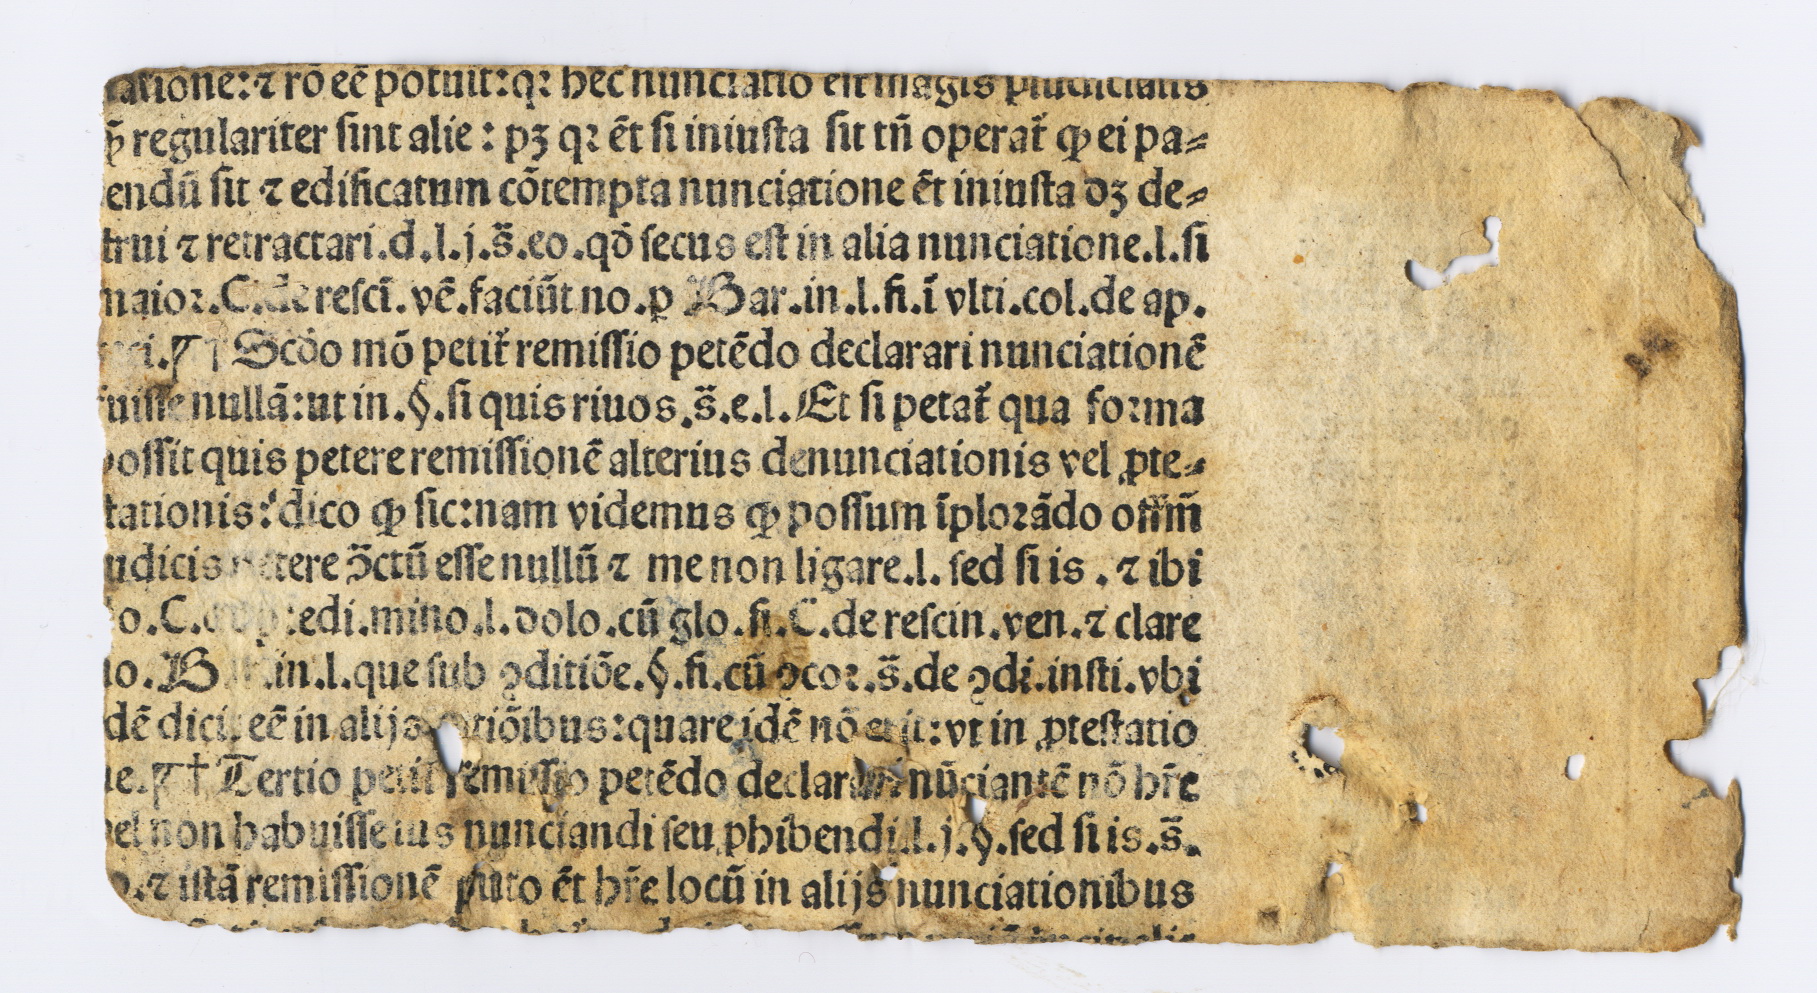 atione: ⁊ rō eē potuit: qꝛ hec nunciatio est magis piudicialis
ꝙ̃ regulariter ſint alie : pꝫ qꝛ ēt ſi iniuſta ſit tñ operat̃ ꝙ ei pa⸗
endū ſit ⁊ edificatum cōtempta nunciatione ēt iniuſta dꝫ de⸗
trui ⁊ retractari.d.l.j.s̃.eo.qđ ſecus eſt in alia nunciatione.l.ſi
maioꝛ.C.de reſci̅.vē.faciūt no.ꝑ Bar.in.l.fi.ī vlti.col.de ap.
ci.¶† Scđo mō petit̃ remiſſio petēdo declarari nunciationē
fuiſſe nullā:ut in.§.ſi quis riuos.s̃.e.l.Et ſi petat̃ qua foꝛma
poſſit quis petere remiſſionē alterius denunciationis vel ꝓte⸗
tationis:dico ꝙ ſic:nam videmus ꝙ poſſum īploꝛādo offm̃
udicis petere ↄ̃ctū eſſe nullū ⁊ me non ligare.l. ſed ſi is . ⁊ ibi
o.C. edi.mino.l.dolo.cū glo.fi.C.de reſcin.ven.⁊ clare
no.Bar.in.l.que ſub ꝯditiōe.§.fi.cū ꝯcoꝛ.s̃.de ꝯdi.inſti.vbi
dē dicit eē in alijs tiōibus:quare idē nō erit:vt in ꝓteſtatio
ne.¶† Tertio petit̃ remiſſio petēdo declarari nūciantē nō hr̃e
vel non habuiſſe ius nunciandi ſeu ꝓhibendi.l.j.§.ſed ſi is.s̃.
o.⁊ iſtā remiſſionē puto ēt hr̃e locū in alijs nunciationibus